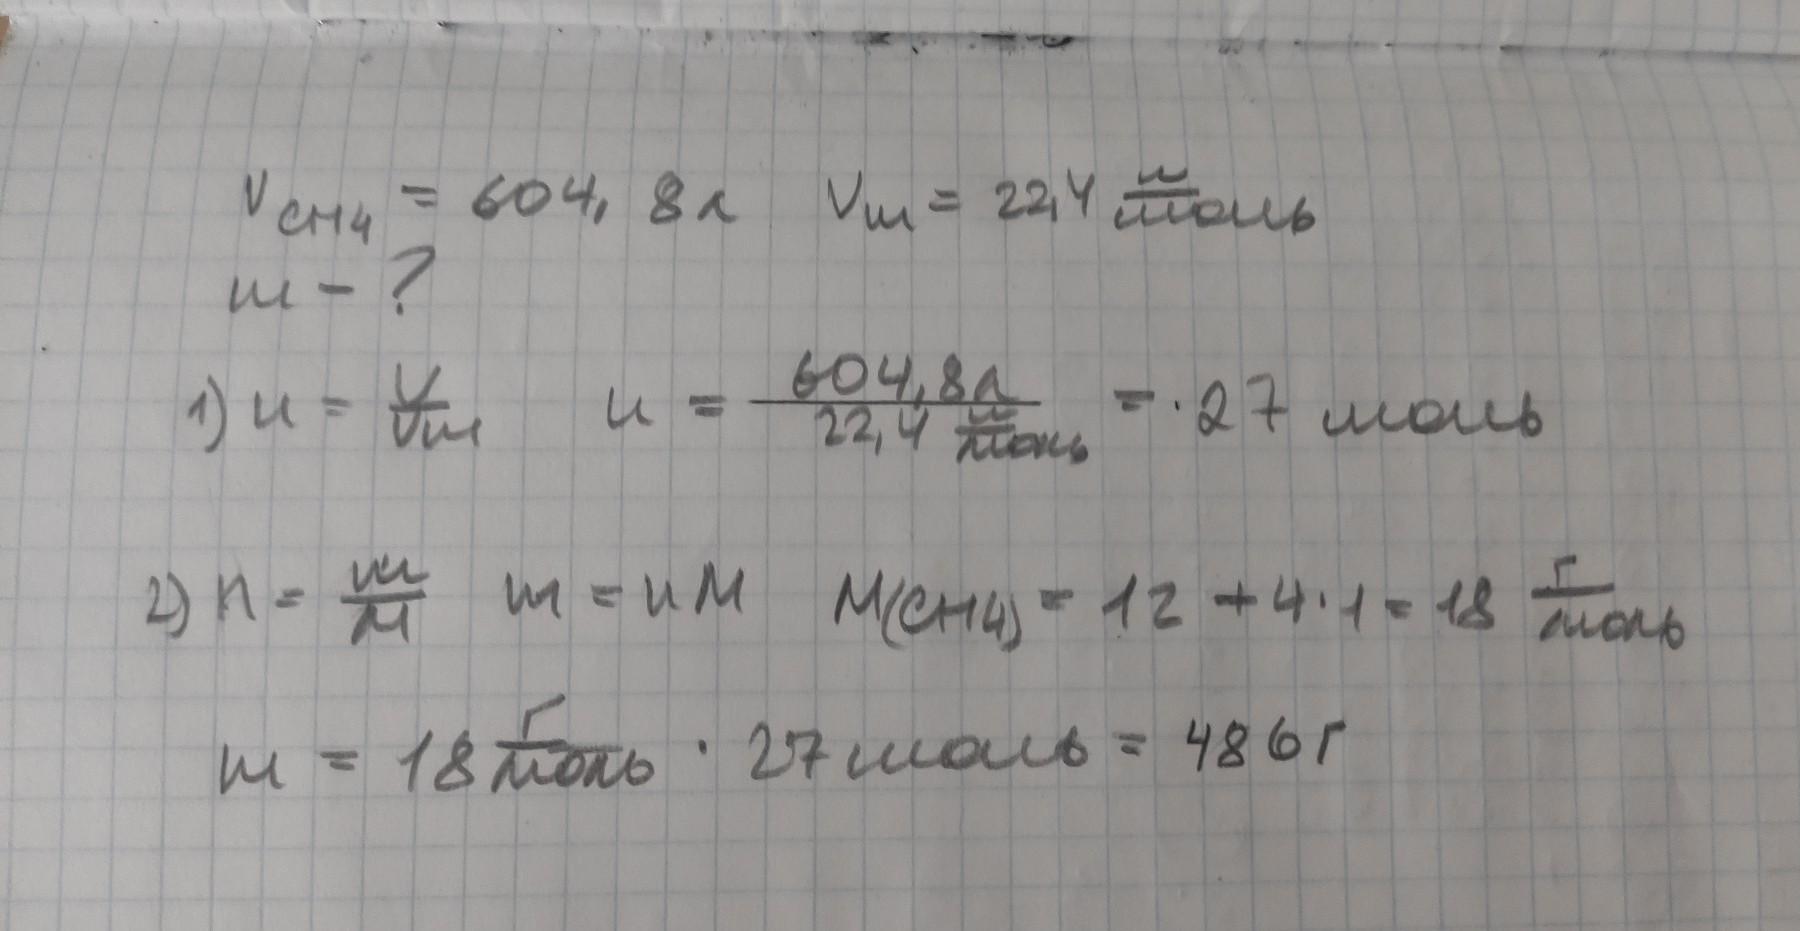 V CH4 = 604,8л Vm = 22,4 л/моль
m - ?
1) n = V/Vm n = 604,8л / 22,4 л/моль = 27 моль
2) n = m/M m = nM M(CH4) = 12 + 4·1 = 18 г/моль
m = 18 г/моль · 27 моль = 486г